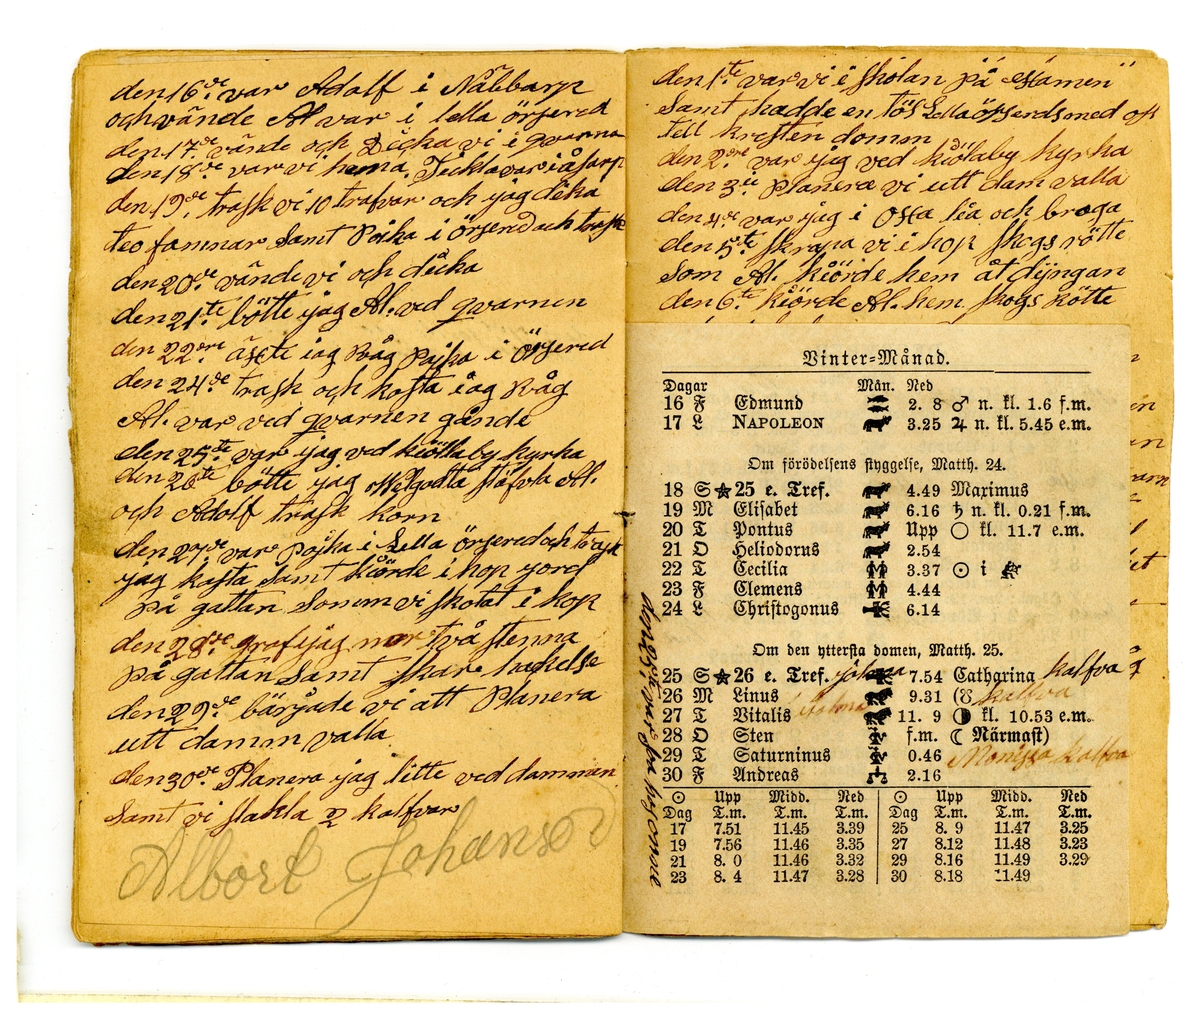 den 16de var Adolf i Nåbbarp
och vände Al var i lella örsered
den 17.de vände och Dicka vi i qvarna
den 18de var vi hema. Tecklavar i åsarp
den 19de, trask vi 10 trafvar och ijag dicka
teo famnar Samt Poika i örsered och trask
den 20de vände vi och dicka
den 21.te bötte ijag Al. ved qvarnen
den 22dre äfste iag Råg Pojka i Örsered
den 24de trask och kasta iag Råg
Al. var ved qvarnen gånde
den 25.te var ijag ved kiöllaby kyrka
den 26te bötte ijag stöfvla Al.
och Adolf trask korn
den 27de var Pojka i Lella örsered och trask
ijag kasta Samt kiörde i hop yord
på gattan Somm vi skotat i hop
den 28de grafte ijag mor två stenna
på gattan Samt skar hackelse
den 29.de bärjade vi att Planera
utt damm valla
den 30de Planera ijag litte ved damman
Samt vi slakta 2 kalfvar
Albort Johanson
den 1.te var vi i skolan på esamen
Samt hadde en tös Lella örsered med oss
tell kresten domm
den 2dre var ijag ved kiölaby kyrka
den 3ie Planera vi utt dam valla
den 4.de var ijag i Osta léa och broga
den 5te skrapa vi i hop skogs rötte
Som Al. kiörde hem åt dijngan
den 6.te kiörde Al. hem skogs rötte
Vinter-Månad.
Dagar Mån. Ned
16 F Edmund 2. 8 ♂ n. kl. 1.6 f.m.
17 L NAPOLEON 3.25 ♃ n. kl. 5.45 e.m.
Om förödelsens styggelse, Matth. 24.
18 S ★ 25 e. Tref. 4.49 Maximus
19 M Elisabet 6.16 ♄ n. kl. 0.21 f.m.
20 T Pontus Upp ○ kl. 11.7 e.m.
21 O Heliodorus 2.54
22 T Cecilia 3.37 ☉ i ♐
23 F Clemens 4.44
24 L Christogonus 6.14
Om den yttersta domen, Matth. 25.
25 S ★ 26 e. Tref. 7.54 Catharina kalfva
26 M Linus 9.31 kalfva
27 T Vitalis 11. 9 ◑ kl. 10.53 e.m.
28 O Sten f.m. (☾ Närmast)
29 T Saturninus 0.46 kalfva
30 F Andreas 2.16
☉ Upp Midd. Ned ☉ Upp Midd. Ned
Dag T.m. T.m. T.m. Dag T.m. T.m. T.m.
17 7.51 11.45 3.39 25 8. 9 11.47 3.25
19 7.56 11.46 3.35 27 8.12 11.48 3.23
21 8. 0 11.46 3.32 29 8.16 11.49 3.29
23 8. 4 11.47 3.28 30 8.18 11.49